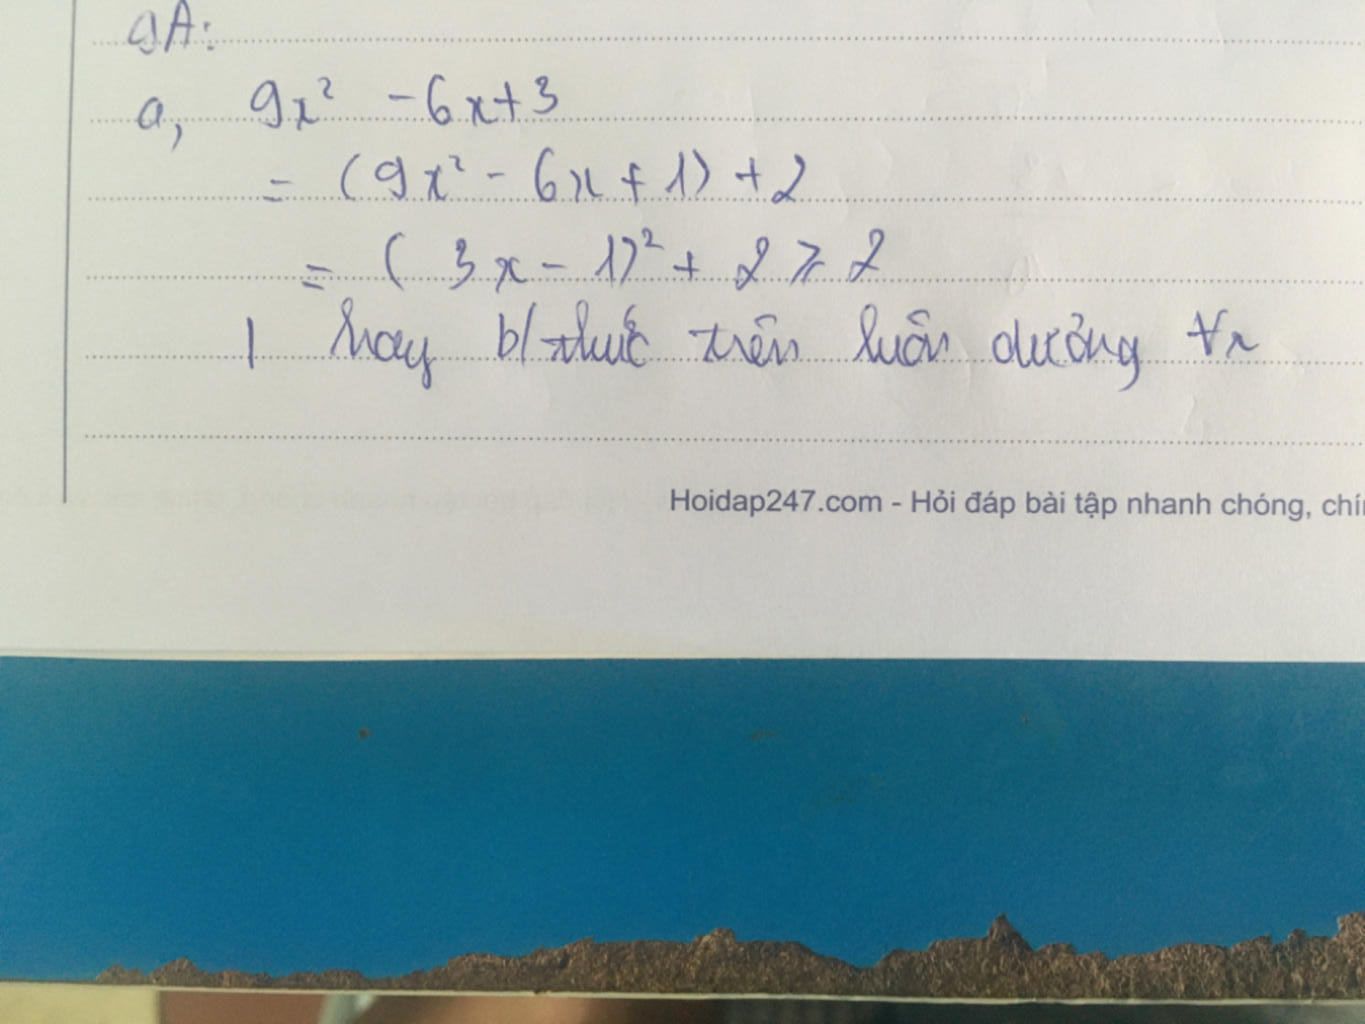 gA:
a, 9x² - 6x + 3
= (9x² - 6x + 1) + 2
= (3x - 1)² + 2 ⩾ 2
| hay b/thức trên luôn dương ∀x
Hoidap247.com - Hỏi đáp bài tập nhanh chóng, chí